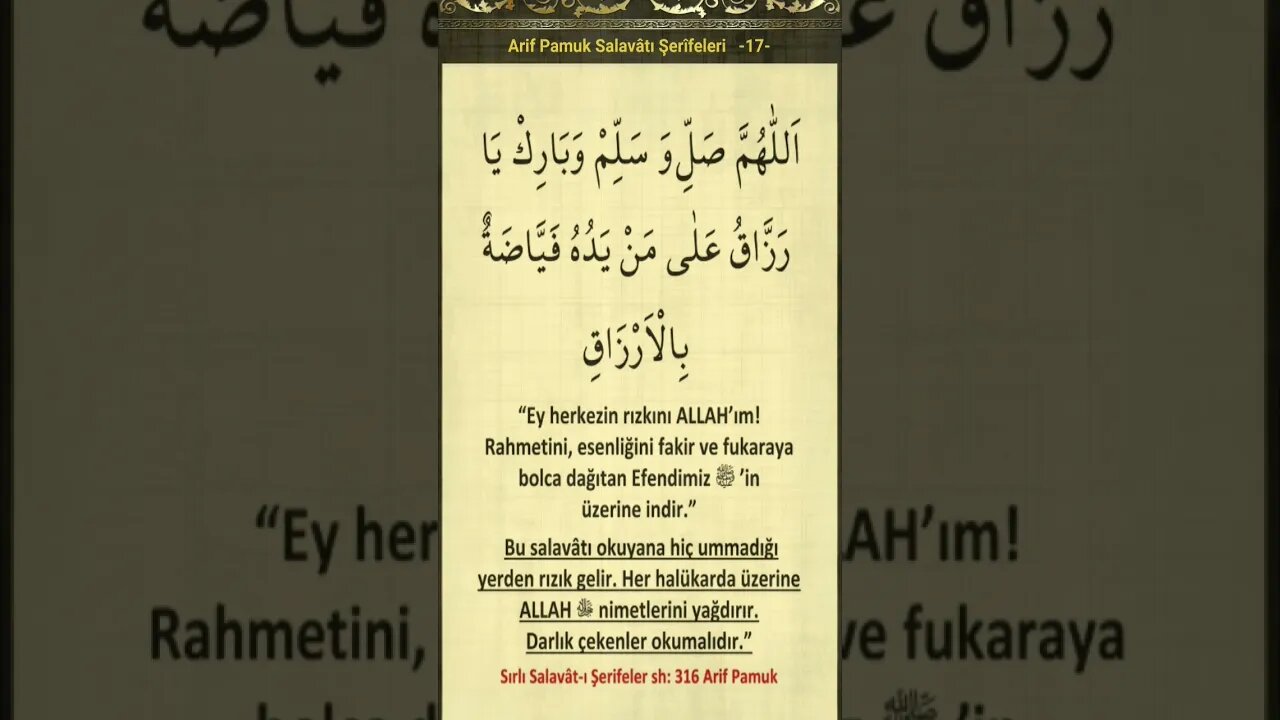 Arif Pamuk Salavâtı Şerîfeleri -17-
اَللّٰهُمَّ صَلِّ وَ سَلِّمْ وَبَارِكْ يَا
رَزَّاقُ عَلٰى مَنْ يَدُهُ فَيَّاضَةٌ
بِالْاَرْزَاقِ
“Ey herkezin rızkını ALLAH’ım!
Rahmetini, esenliğini fakir ve fukaraya
bolca dağıtan Efendimiz ﷺ ’in
üzerine indir.”
Bu salavâtı okuyana hiç ummadığı
yerden rızık gelir. Her halükarda üzerine
ALLAH ﷻ nimetlerini yağdırır.
Darlık çekenler okumalıdır.”
Sırlı Salavât-ı Şerifeler sh: 316 Arif Pamuk